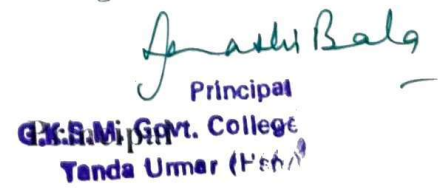 Bala
Principal
G.K.S.M. Govt. College
Principal
Tanda Urmar (Hsh.)